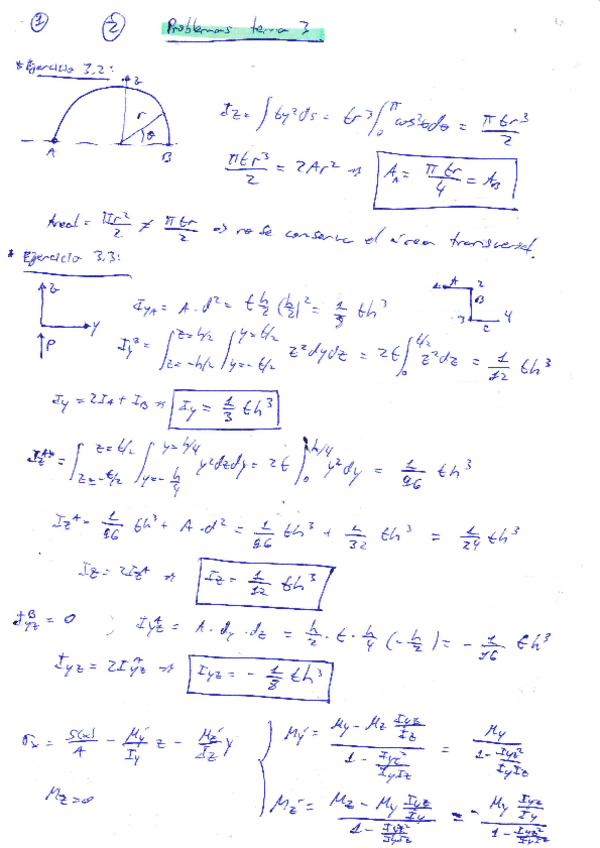 1 2 Problemas tema 3
* Ejercicio 3.2:
z
r
θ
A B
Iz = ∫ ty²ds = tr³ ∫₀^π cos²θdθ = πtr³/2
πtr³/2 = 2Ar² → A_A = πtr/4 = A_B
Areal = πr²/2 ≠ πtr/2 ⇒ no se conserva el área transversal.
* Ejercicio 3.3:
z
y
P
1 A 2
B
3 C 4
I_yA = A · d² = t h/2 (h/2)² = 1/8 th³
I_y^B = ∫_{z=-h/2}^{z=h/2} ∫_{y=-t/2}^{y=t/2} z²dydz = 2t ∫₀^{h/2} z²dz = 1/12 th³
Iy = 2I_A + I_B → Iy = 1/3 th³
= ∫_{z=-t/2}^{z=t/2} ∫_{y=-h/4}^{y=h/4} y²dzdy = 2t ∫₀^{h/4} y²dy = 1/96 th³
Iz^A = 1/96 th³ + A · d² = 1/96 th³ + 1/32 th³ = 1/24 th³
Iz = 2Iz^A → Iz = 1/12 th³
I_yz^B = 0 ; I_yz^A = A · dy · dz = h/2 · t · h/4 (-h/2) = - 1/16 th³
Iyz = 2I_yz^A → Iyz = - 1/8 th³
σx = S(x)/A - My'/Iy z - Mz'/Iz y
My' = (My - Mz Iyz/Iz) / (1 - Iyz²/IyIz) = My / (1 - Iyz²/IyIz)
Mz = 0
Mz' = (Mz - My Iyz/Iy) / (1 - Iyz²/IyIz) = - My Iyz/Iy / (1 - Iyz²/IyIz)